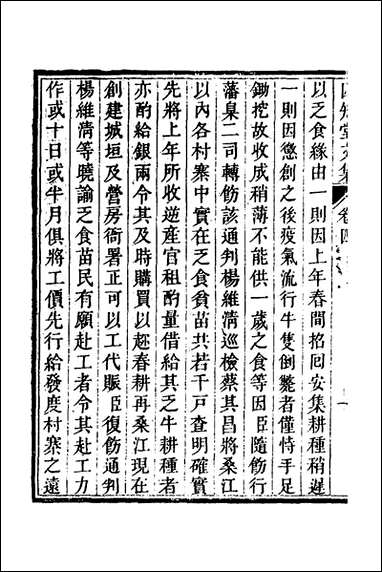 四知堂文集 卷四
以乏食緣由一則因上年春間招囘安集耕種稍遲
一則因懲創之後疫氣流行牛隻倒斃者僅恃手足
鋤挖故收成稍薄不能供一歲之食等因臣隨飭行
藩臬二司轉飭該通判楊維淸巡檢蔡其昌將桑江
以內各村寨中實在乏食貧苗共若干戸查明確實
先將上年所收逆產官租酌量借給其乏牛耕種者
亦酌給銀兩令其及時購買以趂春耕再桑江現在
創建城垣及營房衙署正可以工代賑臣復飭通判
楊維淸等曉諭乏食苗民有願赴工者令其赴工力
作或十日或半月俱將工價先行給發度村寨之遠